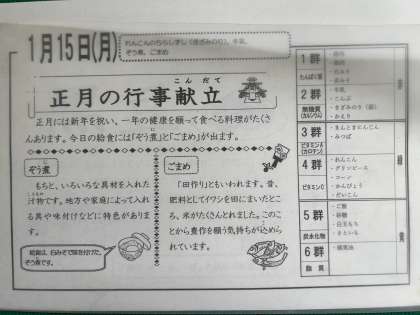 1月15日(月)
れんこんのちらしずし(きざみのり)、牛乳、
ぞう煮、ごまめ
こんだて
正月の行事献立
正月には新年を祝い、一年の健康を願って食べる料理がたく
さんあります。今日の給食には「ぞう煮」と「ごまめ」が出ます。
ぞう煮
もちと、いろいろな具材を入れた
汁物です。地方や家庭によって入れ
る具や味付けなどに特色がありま
す。
給食は、白みそで味を付けた、
ぞう煮です。
ごまめ
「田作り」ともいわれます。昔、
肥料としてイワシを田にまいたとこ
ろ、米がたくさんとれました。このこ
とから豊作を願う気持ちが込めら
れています。
1群
たんぱく質
2群
無機質
(カルシウム)
・牛乳
・こんぶ
・きざみのり(袋)
・かえり
3群
ビタミンA
(カロテン)
・きんときにんじん
・みつば
4群
ビタミンC
・れんこん
・グリンピース
・かんぴょう
・だいこん
緑
5群
炭水化物
・ご飯
・砂糖
・白玉もち
・さといも
黄
6群
脂質